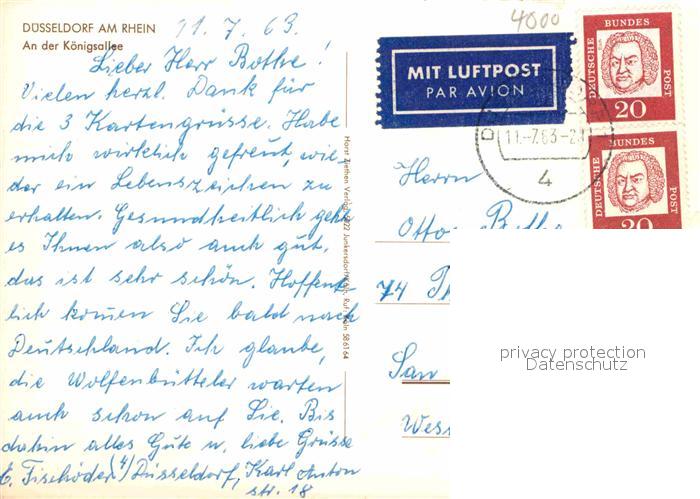 DÜSSELDORF AM RHEIN
An der Königsallee
11. 7. 63.
Lieber Herr Bothe!
Vielen herzl. Dank für
die 3 Kartengrüsse. Habe
mich wirklich gefreut, wie-
der ein Lebenszeichen zu
erhalten. Gesundheitlich geht
es Ihnen also auch gut,
das ist sehr schön. Hoffent-
lich kommen Sie bald nach
Deutschland. Ich glaube,
die Wolfenbütteler warten
auch schon auf Sie. Bis
dahin alles Gute u. liebe Grüsse
Düsseldorf, Karl Anton
str. 18
Horst Ziethen Verlag
58 61 64
4000
MIT LUFTPOST
PAR AVION
DEUTSCHE BUNDES POST
20
11.-7.63-2
4
DEUTSCHE BUNDES POST
20
Herrn
Otto Bothe
74
San
Wess
privacy protection
Datenschutz